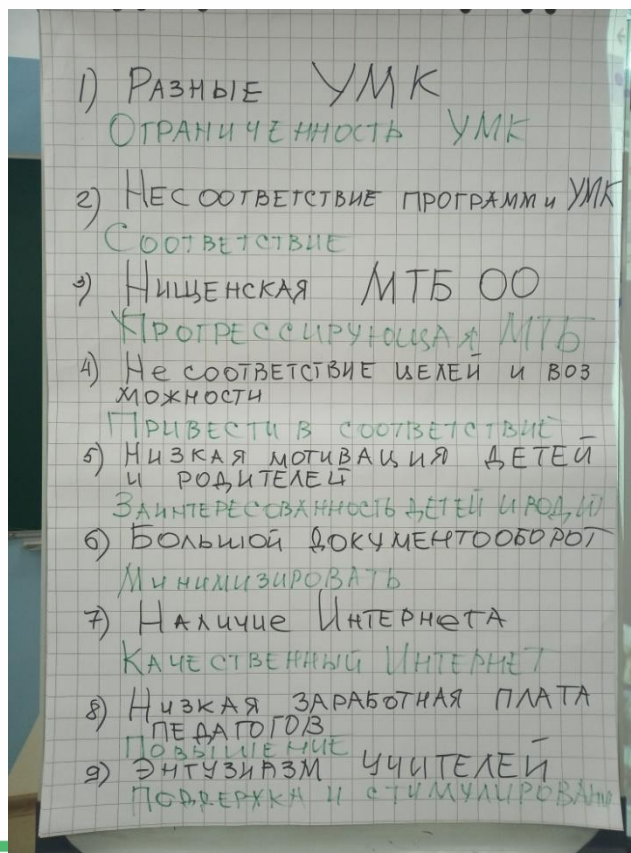 1) Разные УМК
Ограниченность УМК
2) Несоответствие программ и УМК
Соответствие
3) Нищенская МТБ ОО
Прогрессирующая МТБ
4) Не соответствие целей и воз
можности
Привести в соответствие
5) Низкая мотивация детей
и родителей
Заинтересованность детей и родит
6) Большой документооборот
Минимизировать
7) Наличие Интернета
Качественный Интернет
8) Низкая заработная плата
педагогов
Повышение
9) Энтузиазм учителей
Поддержка и стимулировать